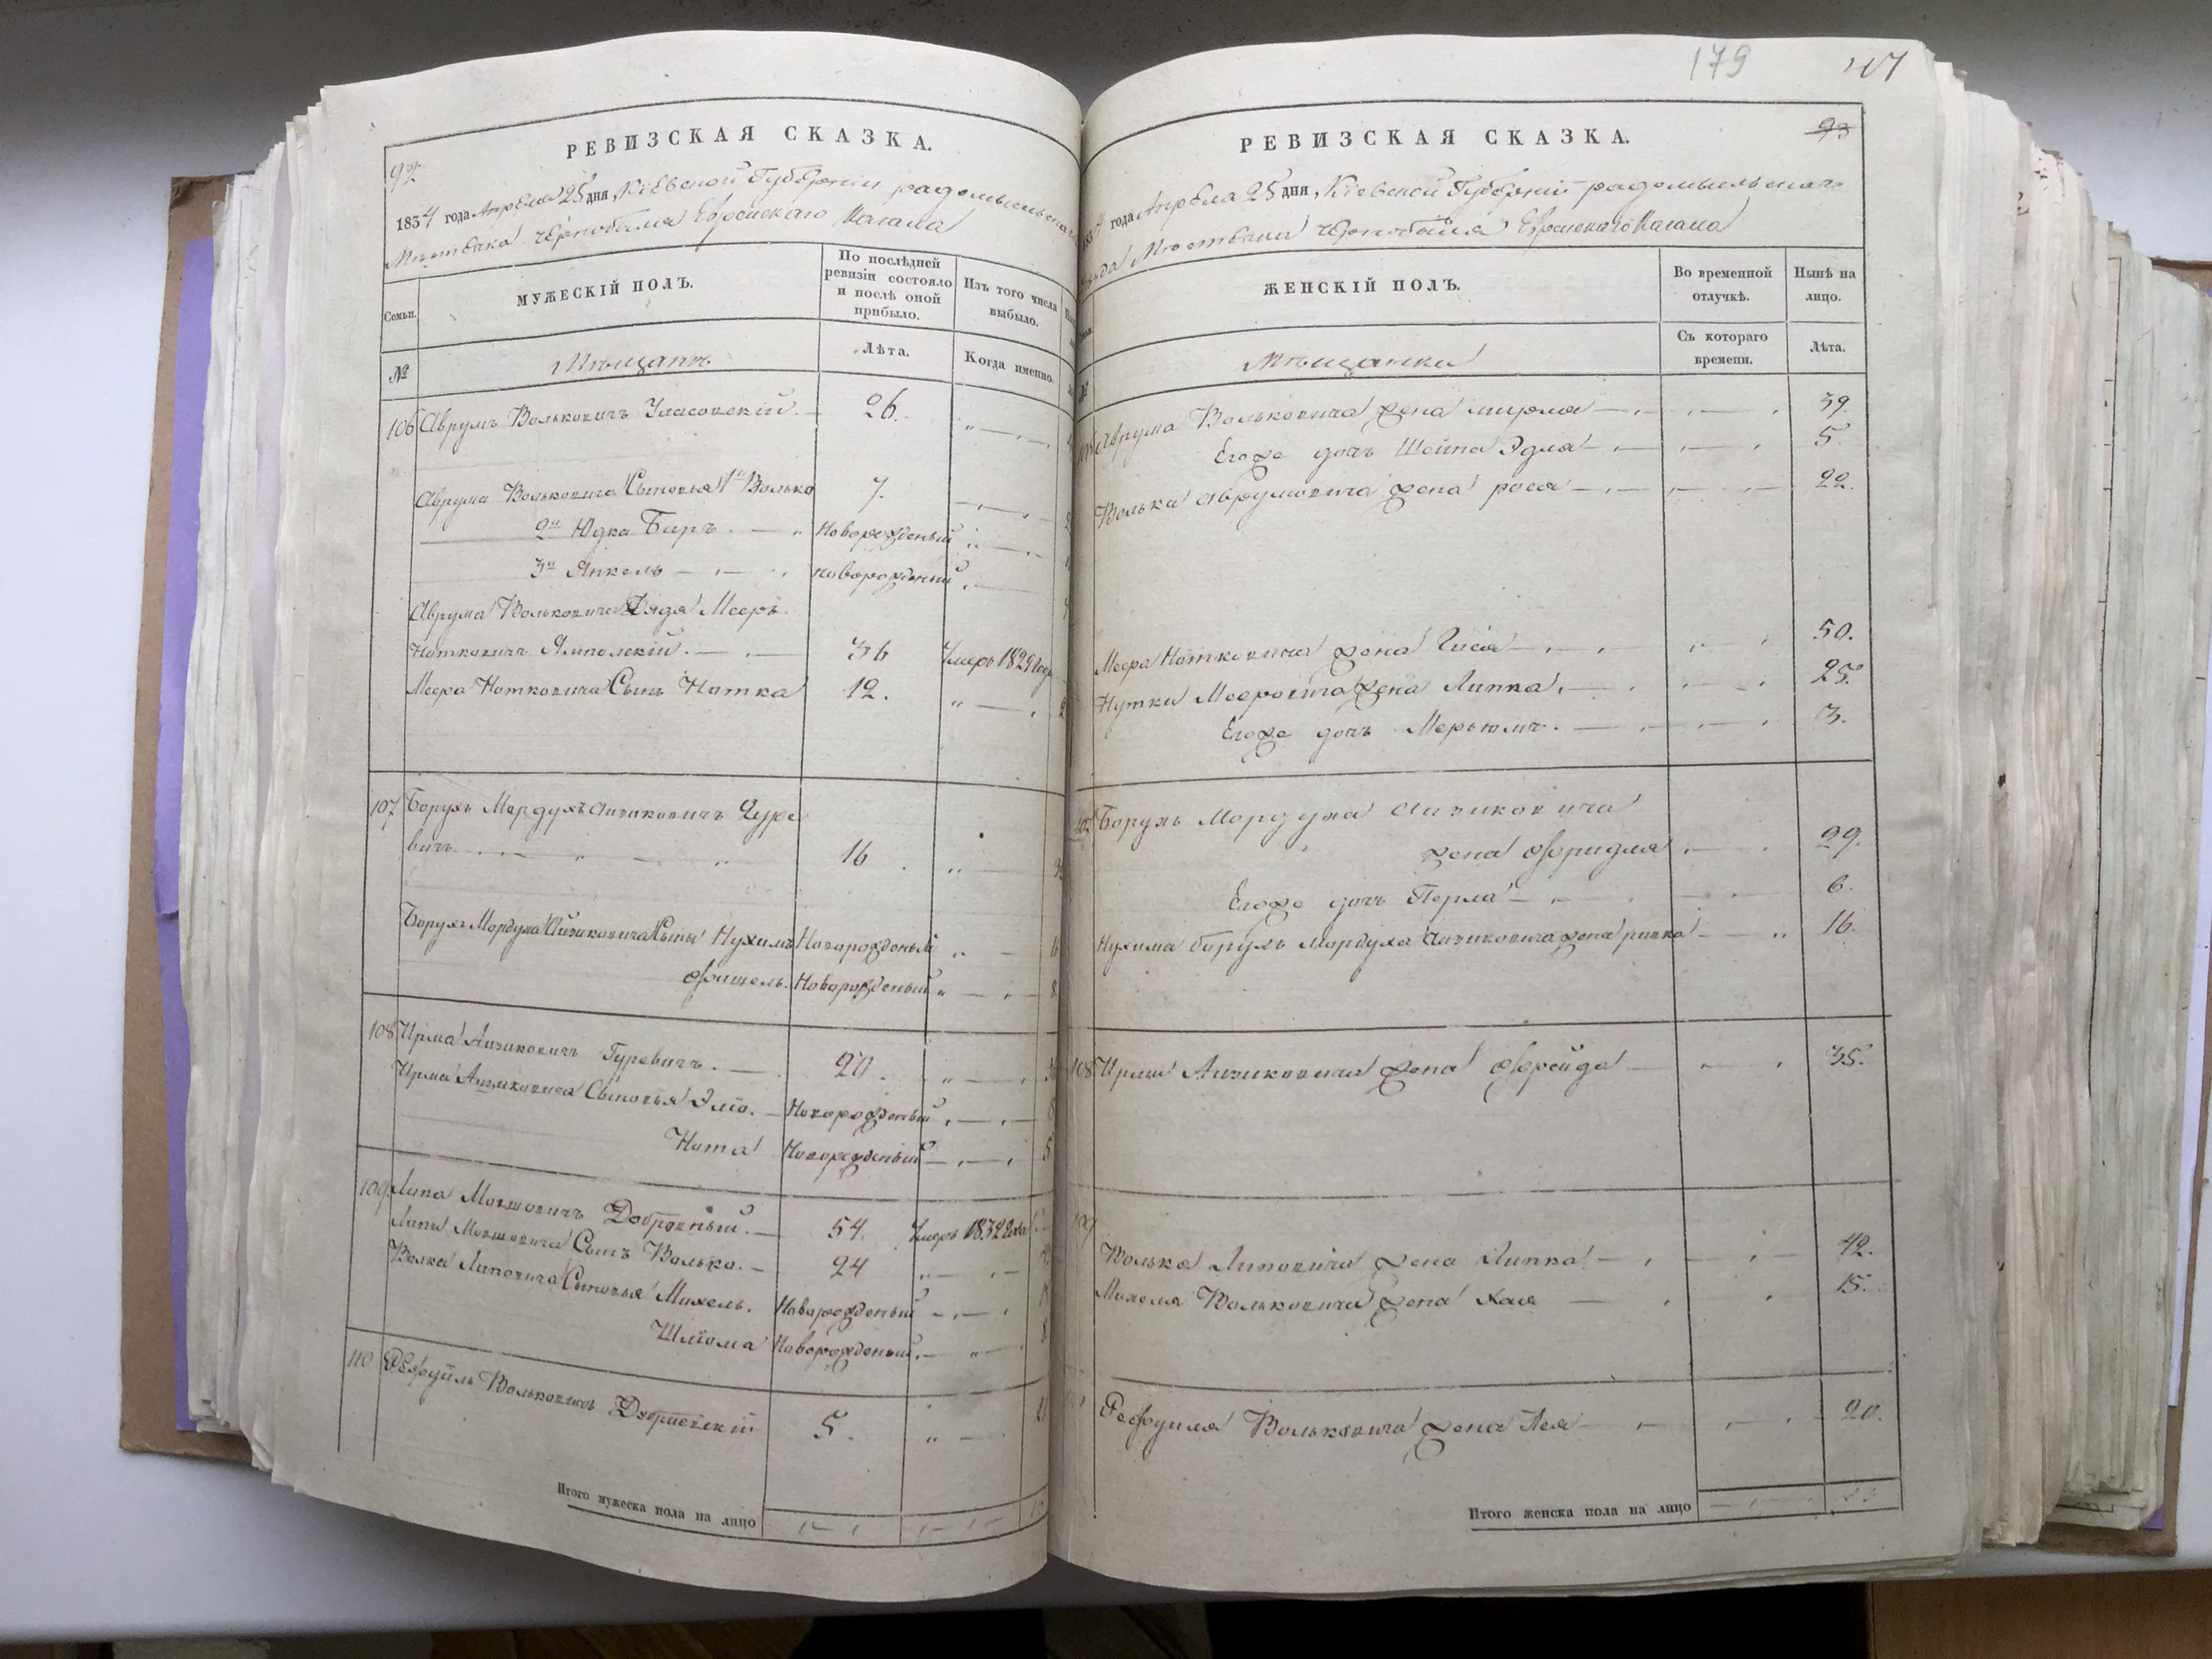 РЕВИЗСКАЯ СКАЗКА.
92
1834 года Апреля 25 дня, Кіевской Губерніи радомысльскаго
Мѣстечка Чернобыля Еврейскаго Кагала
Семьи.
МУЖЕСКІЙ ПОЛЪ.
По послѣдней ревизіи состояло и послѣ оной прибыло.
Изъ того числа выбыло.
№
Мѣщанъ
Лѣта.
Когда именно.
106 Аврумъ Вольковичъ 26.
Аврума Вольковича Сыновья 1й Волько 7.
2й Юдка Биръ Новорожденый
3й Янкель новорожденый
Аврума Вольковича Дядя Мееръ
Нотковичъ Ямполскій. 36 Умеръ 1829 года
Меера Нотковича Сынъ Нотка 12.
107 Борухъ Мордухъ Аизиковичъ Гуре
вичъ 16
Борухъ Мордуха Айзиковича Сыны Нухимъ Новорожденый
Фишель. Новорожденый
108 Ирма Аизиковичъ Гуревичъ. 20.
Ирма Аизиковича Сыновья Эліо. Новорожденый
Нота Новорожденый
109 Липа Мошковичъ 54. Умеръ 1832 года
Липы Мошковича Сынъ Волько. 24
Волка Липовича Сыновья Михель. Новорожденый
Шліома Новорожденый
110 Рефуйль Вольковичъ 5.
Итого мужеска пола на лицо
179
РЕВИЗСКАЯ СКАЗКА.
93
года Апреля 25 дня, Кіевской Губерніи радомысльскаго
уезда Мѣстечка Чернобыля Еврейскаго Кагала
ЖЕНСКІЙ ПОЛЪ.
Во временной отлучкѣ.
Нынѣ на лицо.
Мѣщанки
Съ котораго времени.
Лѣта.
106 Аврума Вольковича жена мирля 39.
Егоже дочь Шейна Эдля 5.
Волька Аврумовича жена рося 22.
Меера Нотковича жена Гися 50.
Нутки Мееровича жена Липка 25.
Егоже дочь Мерьюмъ. 3.
107 Борухъ Мордуха Аизиковича
жена Фридля 29.
Егоже дочь Перла 6.
Нухима борухъ Мордуха Аизиковича жена ривка 16.
108 Ирмы Аизиковича жена Фрейда 35.
109
Волька Липовича жена Липка 42.
Михеля Вольковича жена Хая 15.
Рефуиля Вольковича жена Лея 20.
Итого женска пола на лицо